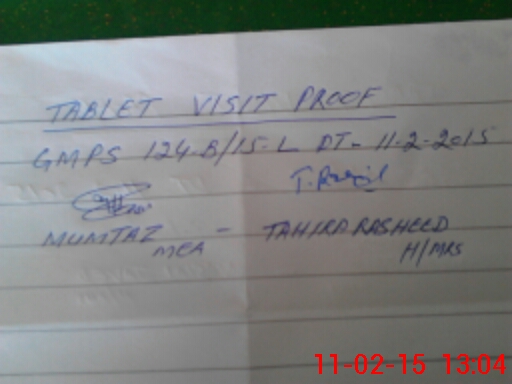 TABLET VISIT PROOF
GMPS 124-B/15-L DT- 11-2-2015
T. Rasjid
MUMTAZ - TAHIRA RASHEED
MEA H/MRS
11-02-15 13:04